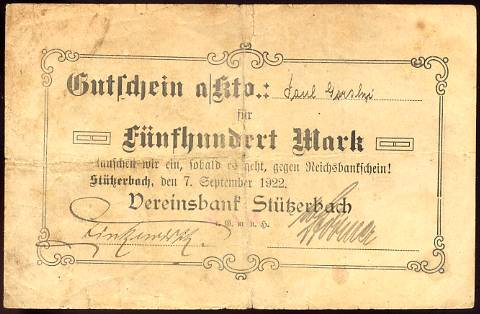 Gutschein a/Kto.: Paul
für
Fünfhundert Mark
tauschen wir ein, sobald es geht, gegen Reichsbankschein!
Stützerbach, den 7. September 1922.
Vereinsbank Stützerbach
e. G. m. u. H.